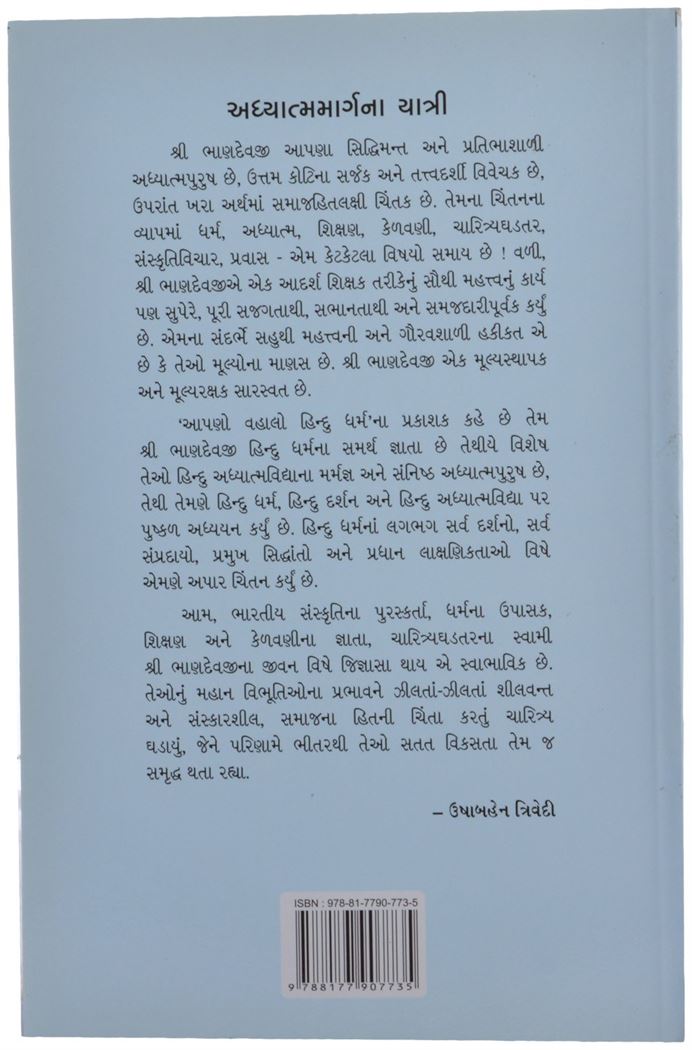 અધ્યાત્મમાર્ગના યાત્રી
શ્રી ભાણદેવજી આપણા સિદ્ધિમન્ત અને પ્રતિભાશાળી
અધ્યાત્મપુરુષ છે, ઉત્તમ કોટિના સર્જક અને તત્ત્વદર્શી વિવેચક છે,
ઉપરાંત ખરા અર્થમાં સમાજહિતલક્ષી ચિંતક છે. તેમના ચિંતનના
વ્યાપમાં ધર્મ, અધ્યાત્મ, શિક્ષણ, કેળવણી, ચારિત્ર્યઘડતર,
સંસ્કૃતિવિચાર, પ્રવાસ - એમ કેટકેટલા વિષયો સમાય છે ! વળી,
શ્રી ભાણદેવજીએ એક આદર્શ શિક્ષક તરીકેનું સૌથી મહત્ત્વનું કાર્ય
પણ સુપેરે, પૂરી સજગતાથી, સભાનતાથી અને સમજદારીપૂર્વક કર્યું
છે. એમના સંદર્ભે સહુથી મહત્ત્વની અને ગૌરવશાળી હકીકત એ
છે કે તેઓ મૂલ્યોના માણસ છે. શ્રી ભાણદેવજી એક મૂલ્યસ્થાપક
અને મૂલ્યરક્ષક સારસ્વત છે.
‘આપણો વહાલો હિન્દુ ધર્મ’ના પ્રકાશક કહે છે તેમ
શ્રી ભાણદેવજી હિન્દુ ધર્મના સમર્થ જ્ઞાતા છે તેથીયે વિશેષ
તેઓ હિન્દુ અધ્યાત્મવિદ્યાના મર્મજ્ઞ અને સંનિષ્ઠ અધ્યાત્મપુરુષ છે,
તેથી તેમણે હિન્દુ ધર્મ, હિન્દુ દર્શન અને હિન્દુ અધ્યાત્મવિદ્યા પર
પુષ્કળ અધ્યયન કર્યું છે. હિન્દુ ધર્મનાં લગભગ સર્વ દર્શનો, સર્વ
સંપ્રદાયો, પ્રમુખ સિદ્ધાંતો અને પ્રધાન લાક્ષણિકતાઓ વિષે
એમણે અપાર ચિંતન કર્યું છે.
આમ, ભારતીય સંસ્કૃતિના પુરસ્કર્તા, ધર્મના ઉપાસક,
શિક્ષણ અને કેળવણીના જ્ઞાતા, ચારિત્ર્યઘડતરના સ્વામી
શ્રી ભાણદેવજીના જીવન વિષે જિજ્ઞાસા થાય એ સ્વાભાવિક છે.
તેઓનું મહાન વિભૂતિઓના પ્રભાવને ઝીલતાં-ઝીલતાં શીલવન્ત
અને સંસ્કારશીલ, સમાજના હિતની ચિંતા કરતું ચારિત્ર્ય
ઘડાયું, જેને પરિણામે ભીતરથી તેઓ સતત વિકસતા તેમ જ
સમૃદ્ધ થતા રહ્યા.
– ઉષાબહેન ત્રિવેદી
ISBN : 978-81-7790-773-5
9 788177 907735